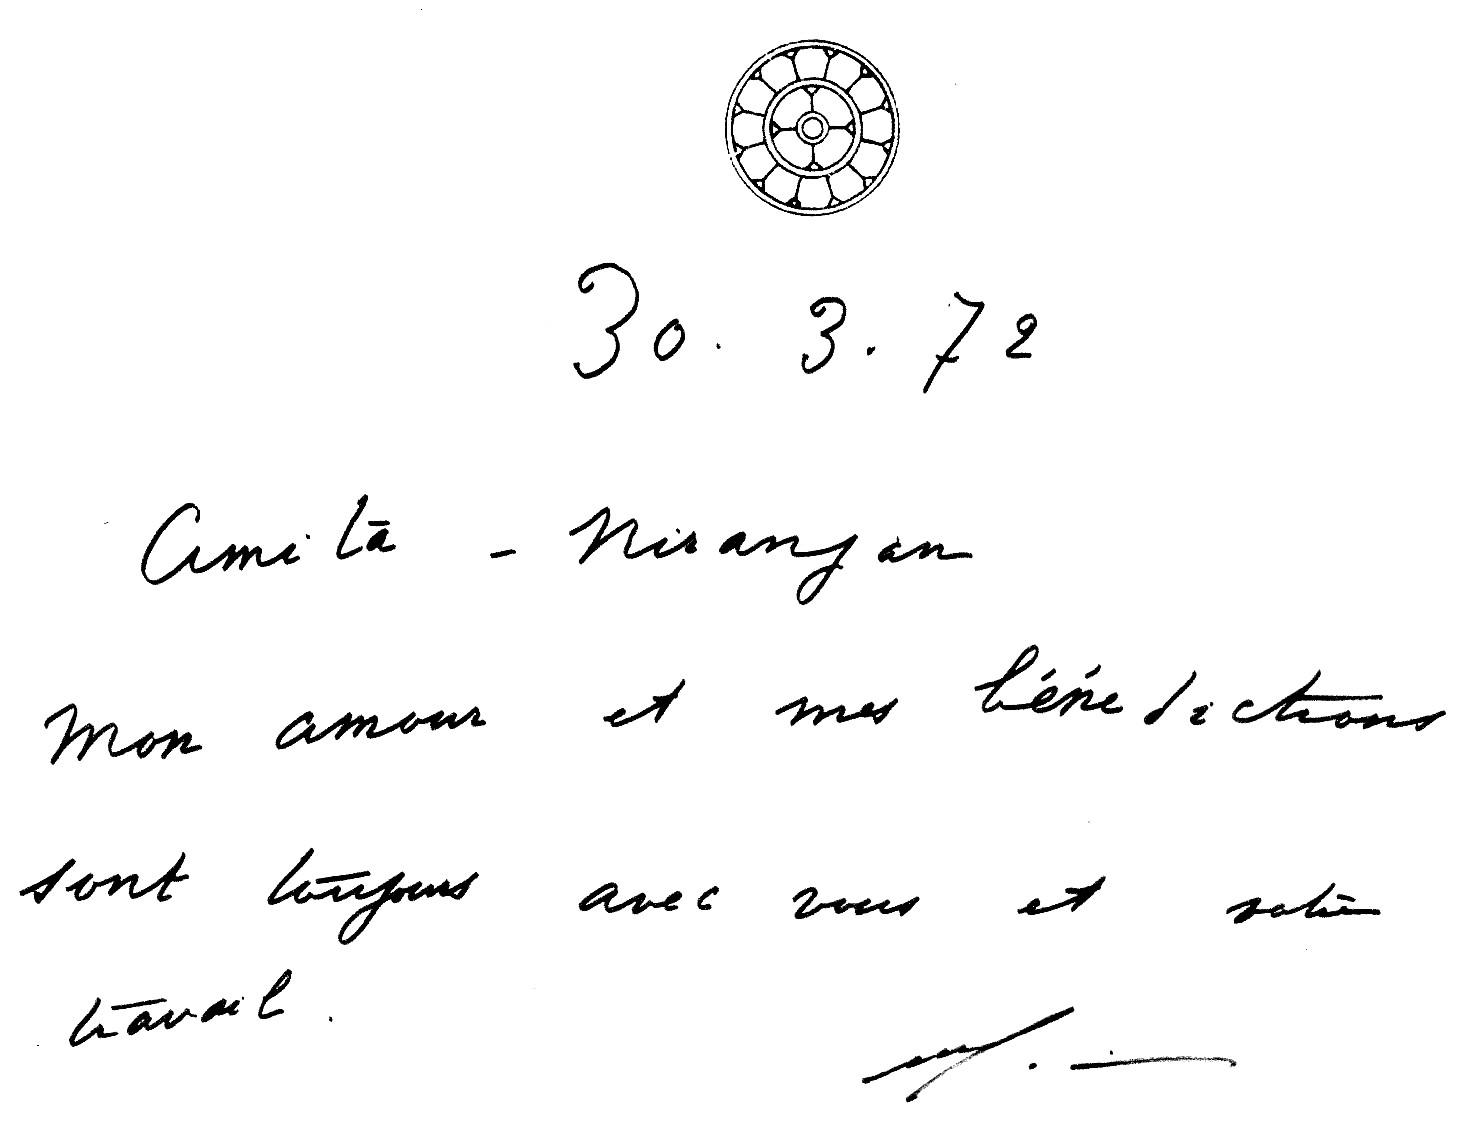 30.3.72
Amita - Niranjan
Mon amour et mes bénédictions
sont toujours avec vous et votre
travail.